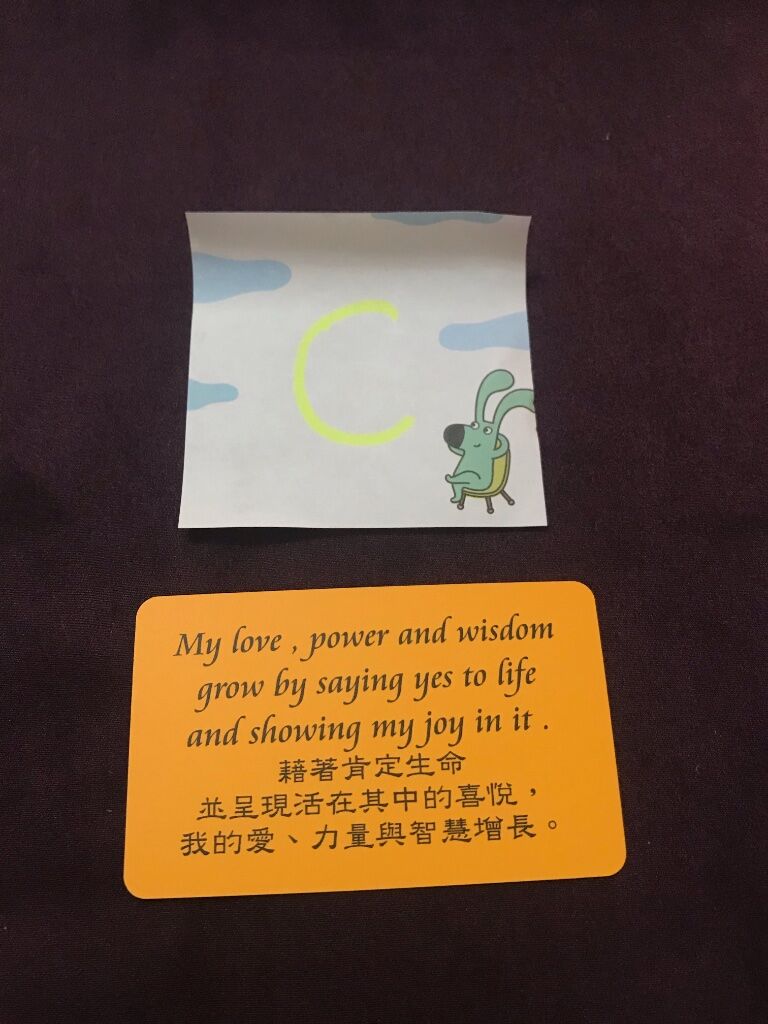 C
My love , power and wisdom
grow by saying yes to life
and showing my joy in it .
藉著肯定生命
並呈現活在其中的喜悅，
我的愛、力量與智慧增長。